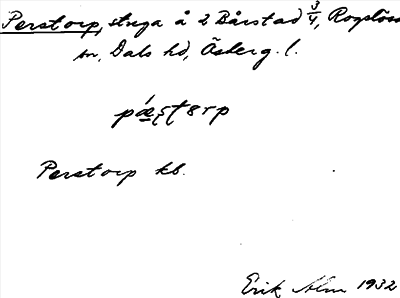 Perstorp, stuga å 2 Bårstad 3/4, Rogslösa
sn, Dals hd, Ösberg. l.
pǽṣṭ8rp
Perstorp kb.
Erik Alm 1932